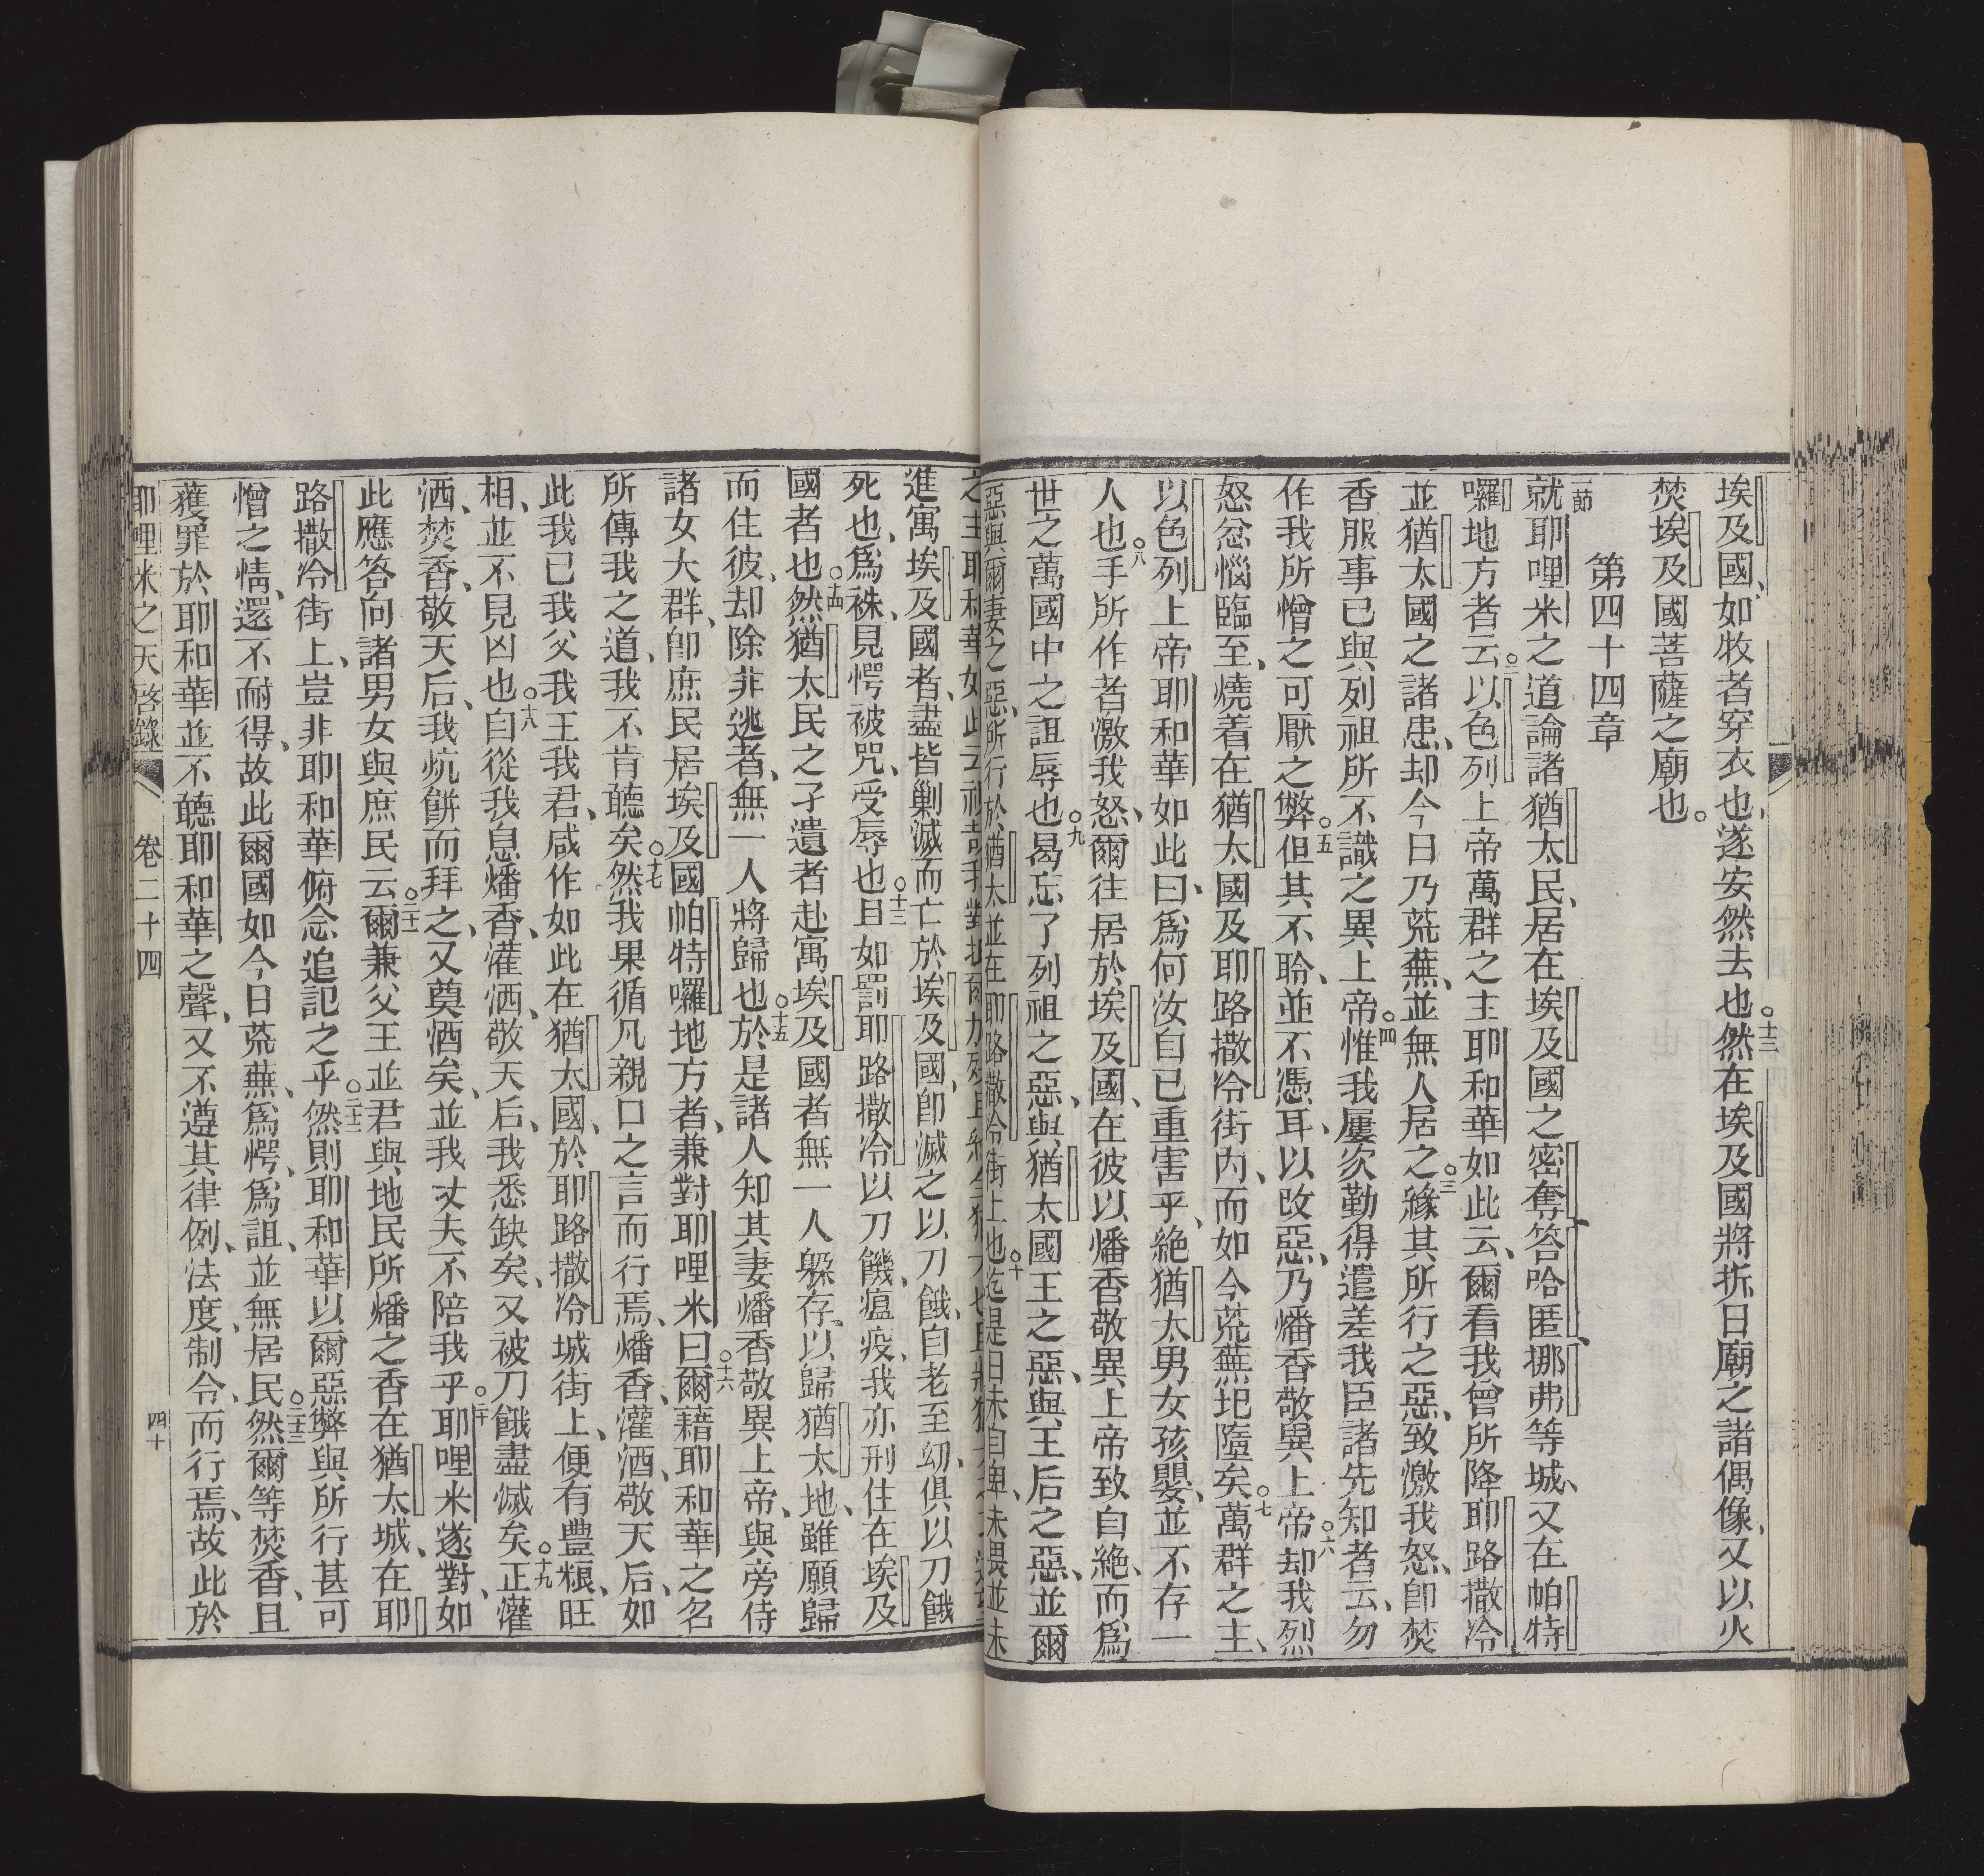 埃及國、如牧者穿衣也、遂安然去也○十三然在埃及國將折日廟之諸偶像、又以火
焚埃及國菩薩之廟也。
第四十四章
一節就耶哩米之道論諸猶太民、居在埃及國之密奪答哈匿、挪弗等城、又在帕特
囉地方者云○二以色列上帝萬群之主耶和華如此云、爾看我曾所降耶路撒冷
並猶太國之諸患、却今日乃荒蕪、並無人居之○三緣其所行之惡、致激我怒、卽焚
香服事已與列祖所不識之異上帝○四惟我屢次勤得遣差我臣諸先知者云、勿
作我所憎之可厭之弊○五但其不聆、並不憑耳以改惡、乃燔香敬異上帝○六却我烈
怒忿惱臨至、燒着在猶太國及耶路撒冷街内、而如今荒蕪圮墮矣○七萬群之主、
以色列上帝耶和華如此曰、爲何汝自已重害乎、絕猶太男女孩嬰、並不存一
人也○八手所作者激我怒、爾往居於埃及國、在彼以燔香敬異上帝致自絕、而爲
世之萬國中之詛辱也○九曷忘了列祖之惡、與猶太國王之惡、與王后之惡、並爾
惡與爾妻之惡、所行於猶太並在耶路撒冷街上也○十迄是日未自卑、未畏並未
之主耶和華如此云
進寓埃及國者、盡皆剿滅而亡於埃及國、卽滅之以刀餓、自老至幼、俱以刀餓
死也、爲袾、見愕被咒、受辱也○十三且如罰耶路撒冷以刀饑、瘟疫、我亦刑住在埃及
國者也○十四然猶太民之孑遺者赴寓埃及國者無一人躲存、以歸猶太地、雖願歸
而住彼、却除非逃者、無一人將歸也○十五於是諸人知其妻燔香敬異上帝、與旁侍
諸女大群、卽庶民居埃及國帕特囉地方者、兼對耶哩米曰○十六爾藉耶和華之名
所傳我之道、我不肯聽矣○十七然我果循凡親口之言而行焉、燔香、灌酒、敬天后、如
此我已我父我王我君、咸作如此在猶太國、於耶路撒冷城街上、便有豊粮、旺
相、並不見凶也○十八自從我息燔香、灌洒、敬天后、我悉缺矣、又被刀餓盡滅矣○十九正灌
洒、焚香、敬天后、我炕餅而拜之、又奠酒矣、並我丈夫不陪我乎○二十耶哩米遂對、如
此應答向諸男女與庶民云○二十一爾兼父王並君與地民所燔之香在猶太城、在耶
路撒冷街上、豈非耶和華俯念追記之乎○二十二然則耶和華以爾惡弊與所行甚可
憎之情、還不耐得、故此爾國如今日荒蕪、爲愕、爲詛、並無居民○二十三然爾等焚香、且
獲罪於耶和華並不聽耶和華之聲、又不遵其律例、法度、制令、而行焉、故此於
耶哩米之天啓錄　卷二十四　四十